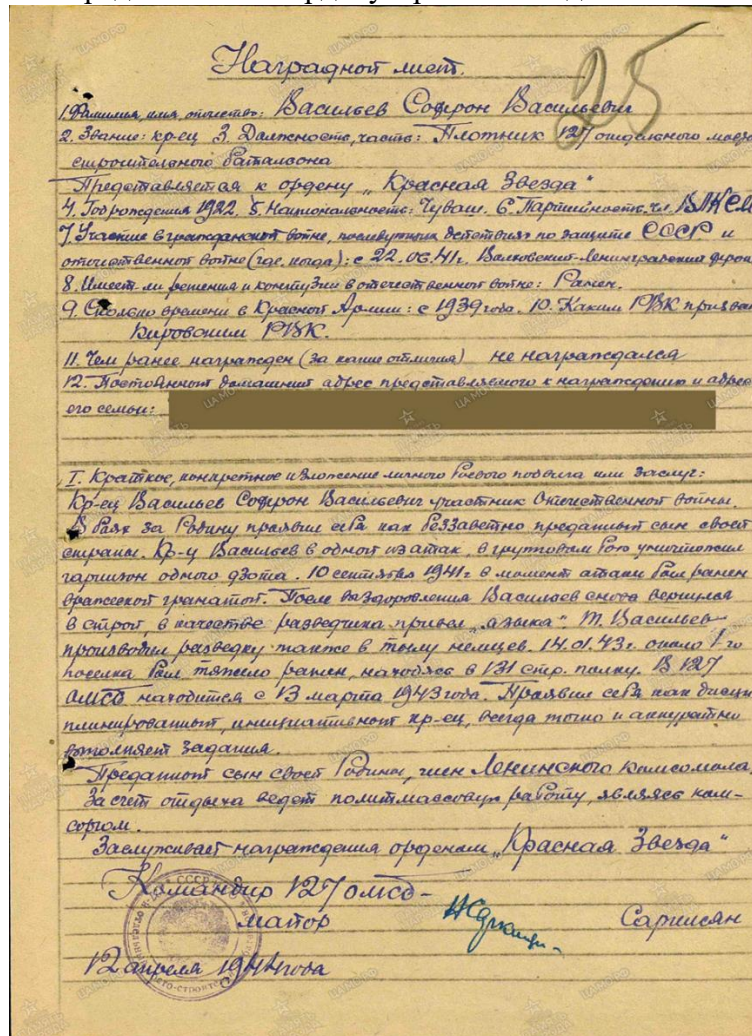 Наградной лист.
25
1. Фамилия, имя, отчество: Васильев Софрон Васильевич
2. Звание: кр-ец 3 Должность, часть: Плотник 127 отдельного мосто
строительного батальона
Представляется к ордену „Красная Звезда"
4. Год рождения 1922. 5. Национальность: Чуваш. 6. Партийность: чл. ВЛКСМ
7. Участие в гражданской войне, последующих действиях по защите СССР и
отечественной войне (где, когда): с 22.06.41г. Волховский-Ленинградский фрон
8. Имеет ли ранения и контузии в отечественной войне: Ранен.
9. Сколько времени в Красной Армии: с 1939 года. 10. Каким РВК призван
Кировским РВК.
11. Чем ранее награжден (за какие отличия) не награждался
12. Постоянный домашний адрес представляемого к награждению и адрес
его семьи:
I. Краткое, конкретное изложение личного боевого подвига или заслуг:
Кр-ец Васильев Софрон Васильевич участник Отечественной войны.
В боях за Родину проявил себя как беззаветно преданный сын своей
страны. Кр-ц Васильев в одной из атак, в групповом бою уничтожил
гарнизон одного дзота. 10 сентября 1941г в момент атаки был ранен
вражеской гранатой. После выздоровления Васильев снова вернулся
в строй, в качестве разведчика привел „языка" Т. Васильев
производил разведку также в тылу немцев. 14.01.43г. около 1-го
поселка был тяжело ранен, находясь в 131 стр. полку. В 127
ОМСБ находится с 13 марта 1943 года. Проявил себя как дисци
плинированный, инициативной кр-ец, всегда точно и аккуратно
выполняет задания.
Преданный сын своей Родины, член Ленинского Комсомола,
За счет отдыха ведет политмассовую работу, являясь ком-
соргом.
Заслуживает награждения орденом „Красная Звезда"
Командир 127 омсб-
майор Саркисян
12 апреля 1944 года